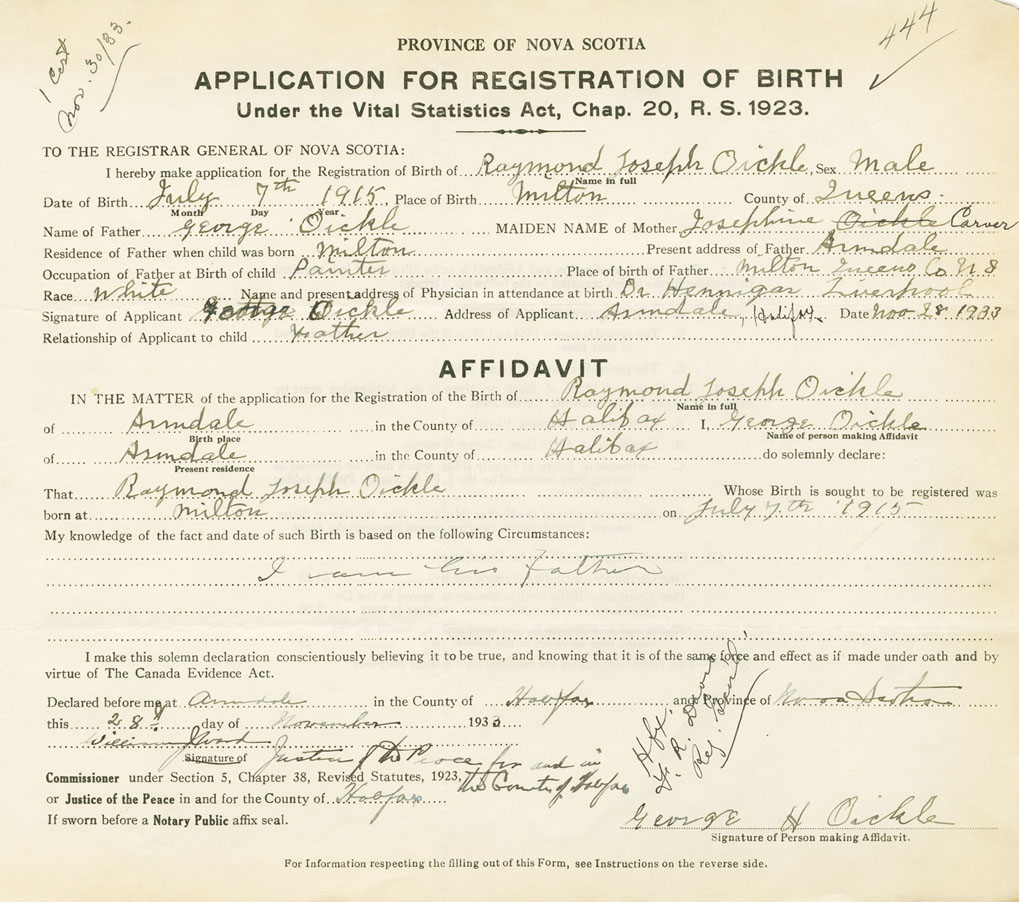 1 Cert
Nov. 30/33.
444
PROVINCE OF NOVA SCOTIA
APPLICATION FOR REGISTRATION OF BIRTH
Under the Vital Statistics Act, Chap. 20, R. S. 1923.
TO THE REGISTRAR GENERAL OF NOVA SCOTIA:
I hereby make application for the Registration of Birth of Raymond Joseph Oickle, Sex Male
Name in full
Date of Birth July 7th 1915, Place of Birth Milton County of Queens.
Month Day Year.
Name of Father George Oickle MAIDEN NAME of Mother Josephine Oickle Carver
Residence of Father when child was born Milton Present address of Father Armdale
Occupation of Father at Birth of child Painter Place of birth of Father Milton Queens Co N S
Race White Name and present address of Physician in attendance at birth Dr Hennigar Liverpool
Signature of Applicant George Oickle Address of Applicant Armdale, Halifax. Date Nov 28 1933
Relationship of Applicant to child Father
AFFIDAVIT
IN THE MATTER of the application for the Registration of the Birth of Raymond Joseph Oickle
Name in full
of Armdale in the County of Halifax I, George Oickle
Birth place Name of person making Affidavit
of Armdale in the County of Halifax do solemnly declare:
Present residence
That Raymond Joseph Oickle Whose Birth is sought to be registered was
born at Milton on July 7th 1915
My knowledge of the fact and date of such Birth is based on the following Circumstances:
I am his Father
I make this solemn declaration conscientiously believing it to be true, and knowing that it is of the same force and effect as if made under oath and by
virtue of The Canada Evidence Act.
Declared before me at Armdale in the County of Halifax and Province of Nova Scotia
this 28th day of November 1933
William J
Signature of Justice of the Peace for and in
Commissioner under Section 5, Chapter 38, Revised Statutes, 1923, the County of Halifax
or Justice of the Peace in and for the County of Halifax
If sworn before a Notary Public affix seal.
Hfx.
Reg. Gen'l
George H Oickle
Signature of Person making Affidavit.
For Information respecting the filling out of this Form, see Instructions on the reverse side.